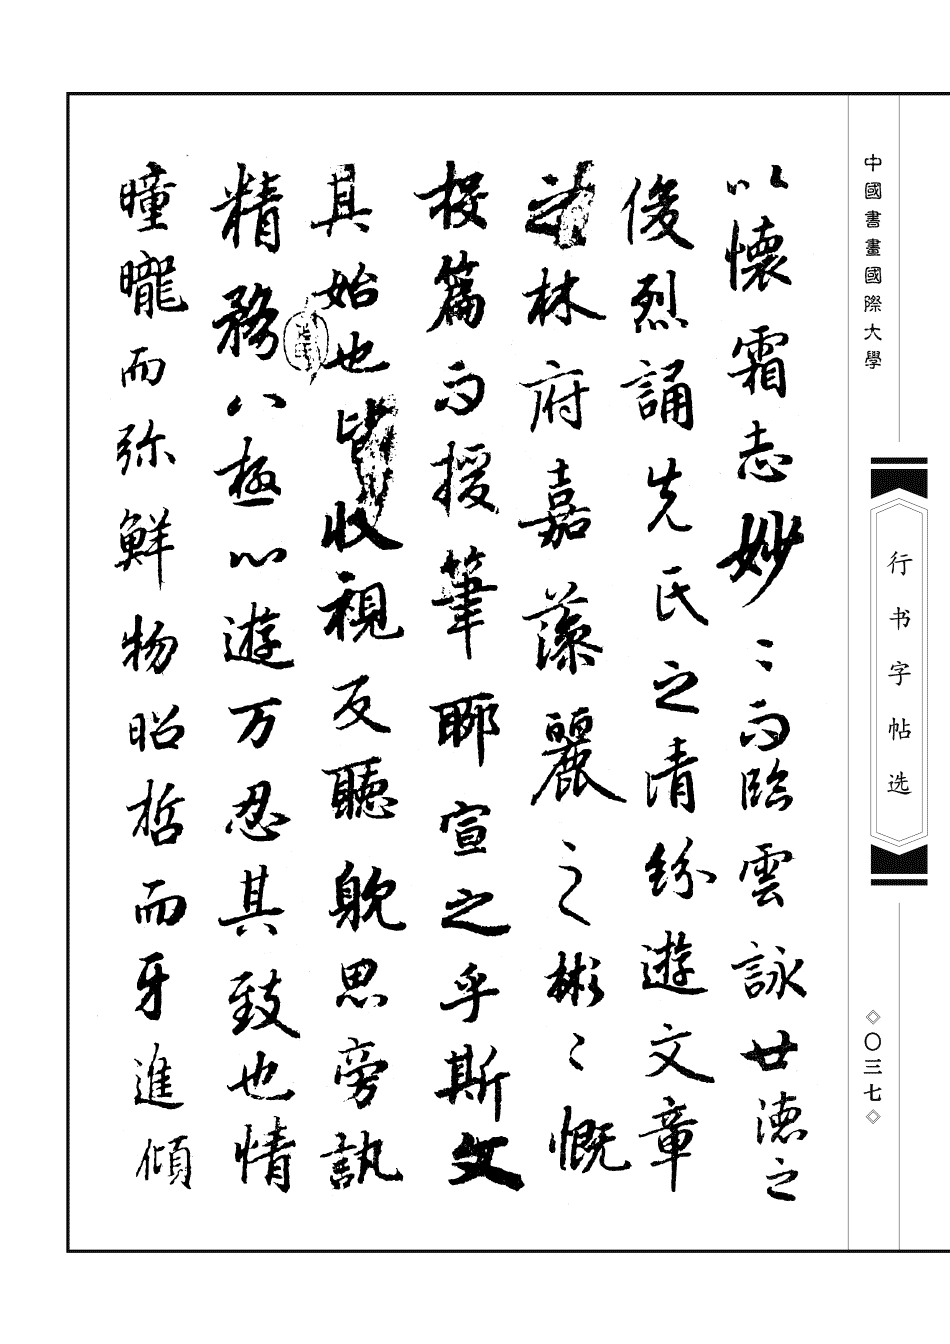 中國書畫國際大學
行书字帖选
◇〇三七◇
以懷霜志妙〻而臨雲詠世德之
俊烈誦先氏之清紛遊文章
之林府嘉藻麗之彬〻慨
投篇而授筆聊宣之乎斯文
其始也皆收視反聽躭思旁訊
精務八極心遊万忍其致也情
曈曨而弥鮮物昭哲而牙進傾